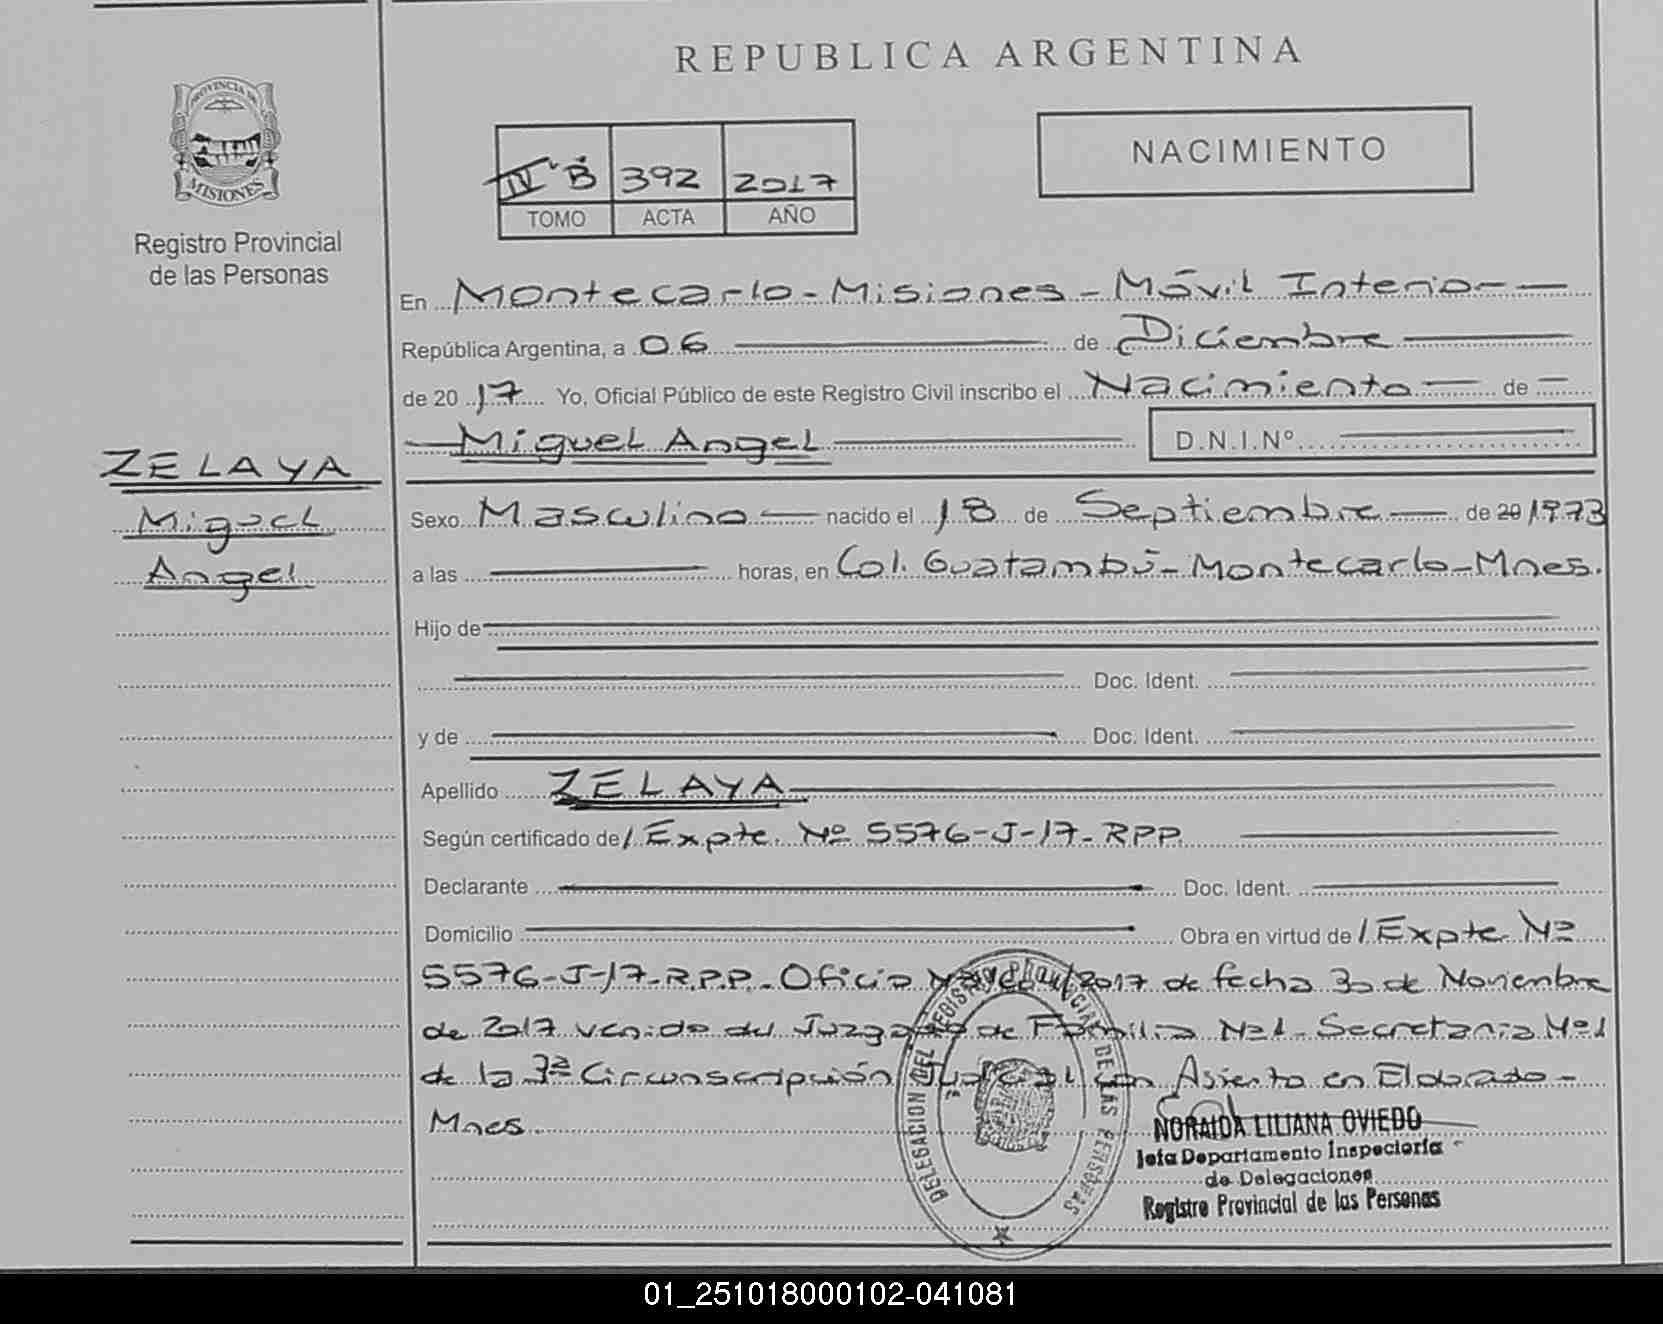 REPUBLICA ARGENTINA
PROVINCIA DE
MISIONES
Registro Provincial
de las Personas
NACIMIENTO
IV B 392 2017
TOMO ACTA AÑO
En Montecarlo - Misiones - Móvil Interior
República Argentina, a 06 de Diciembre
de 2017 Yo, Oficial Público de este Registro Civil inscribo el Nacimiento de
Miguel Angel D.N.I.Nº
ZELAYA
Miguel
Angel
Sexo Masculino nacido el 18 de Septiembre de 20 1973
a las horas, en Col. Guatambú - Montecarlo - Mnes.
Hijo de
Doc. Ident.
y de Doc. Ident.
Apellido ZELAYA
Según certificado de / Expte. Nº 5576-J-17-RPP.
Declarante Doc. Ident.
Domicilio Obra en virtud de / Expte Nº
5576-J-17-R.P.P. Oficio /2017 de fecha 30 de Noviembre
de 2017 venido del Juzgado de Familia Nº1 - Secretaria Nº1
de la 3ª Circunscripción Judicial con Asiento en Eldorado -
Mnes.
DELEGACION DEL REGISTRO PROVINCIAL DE LAS PERSONAS
NORAIDA LILIANA OVIEDO
Jefa Departamento Inspectoría
de Delegaciones
Registro Provincial de las Personas
01_251018000102-041081